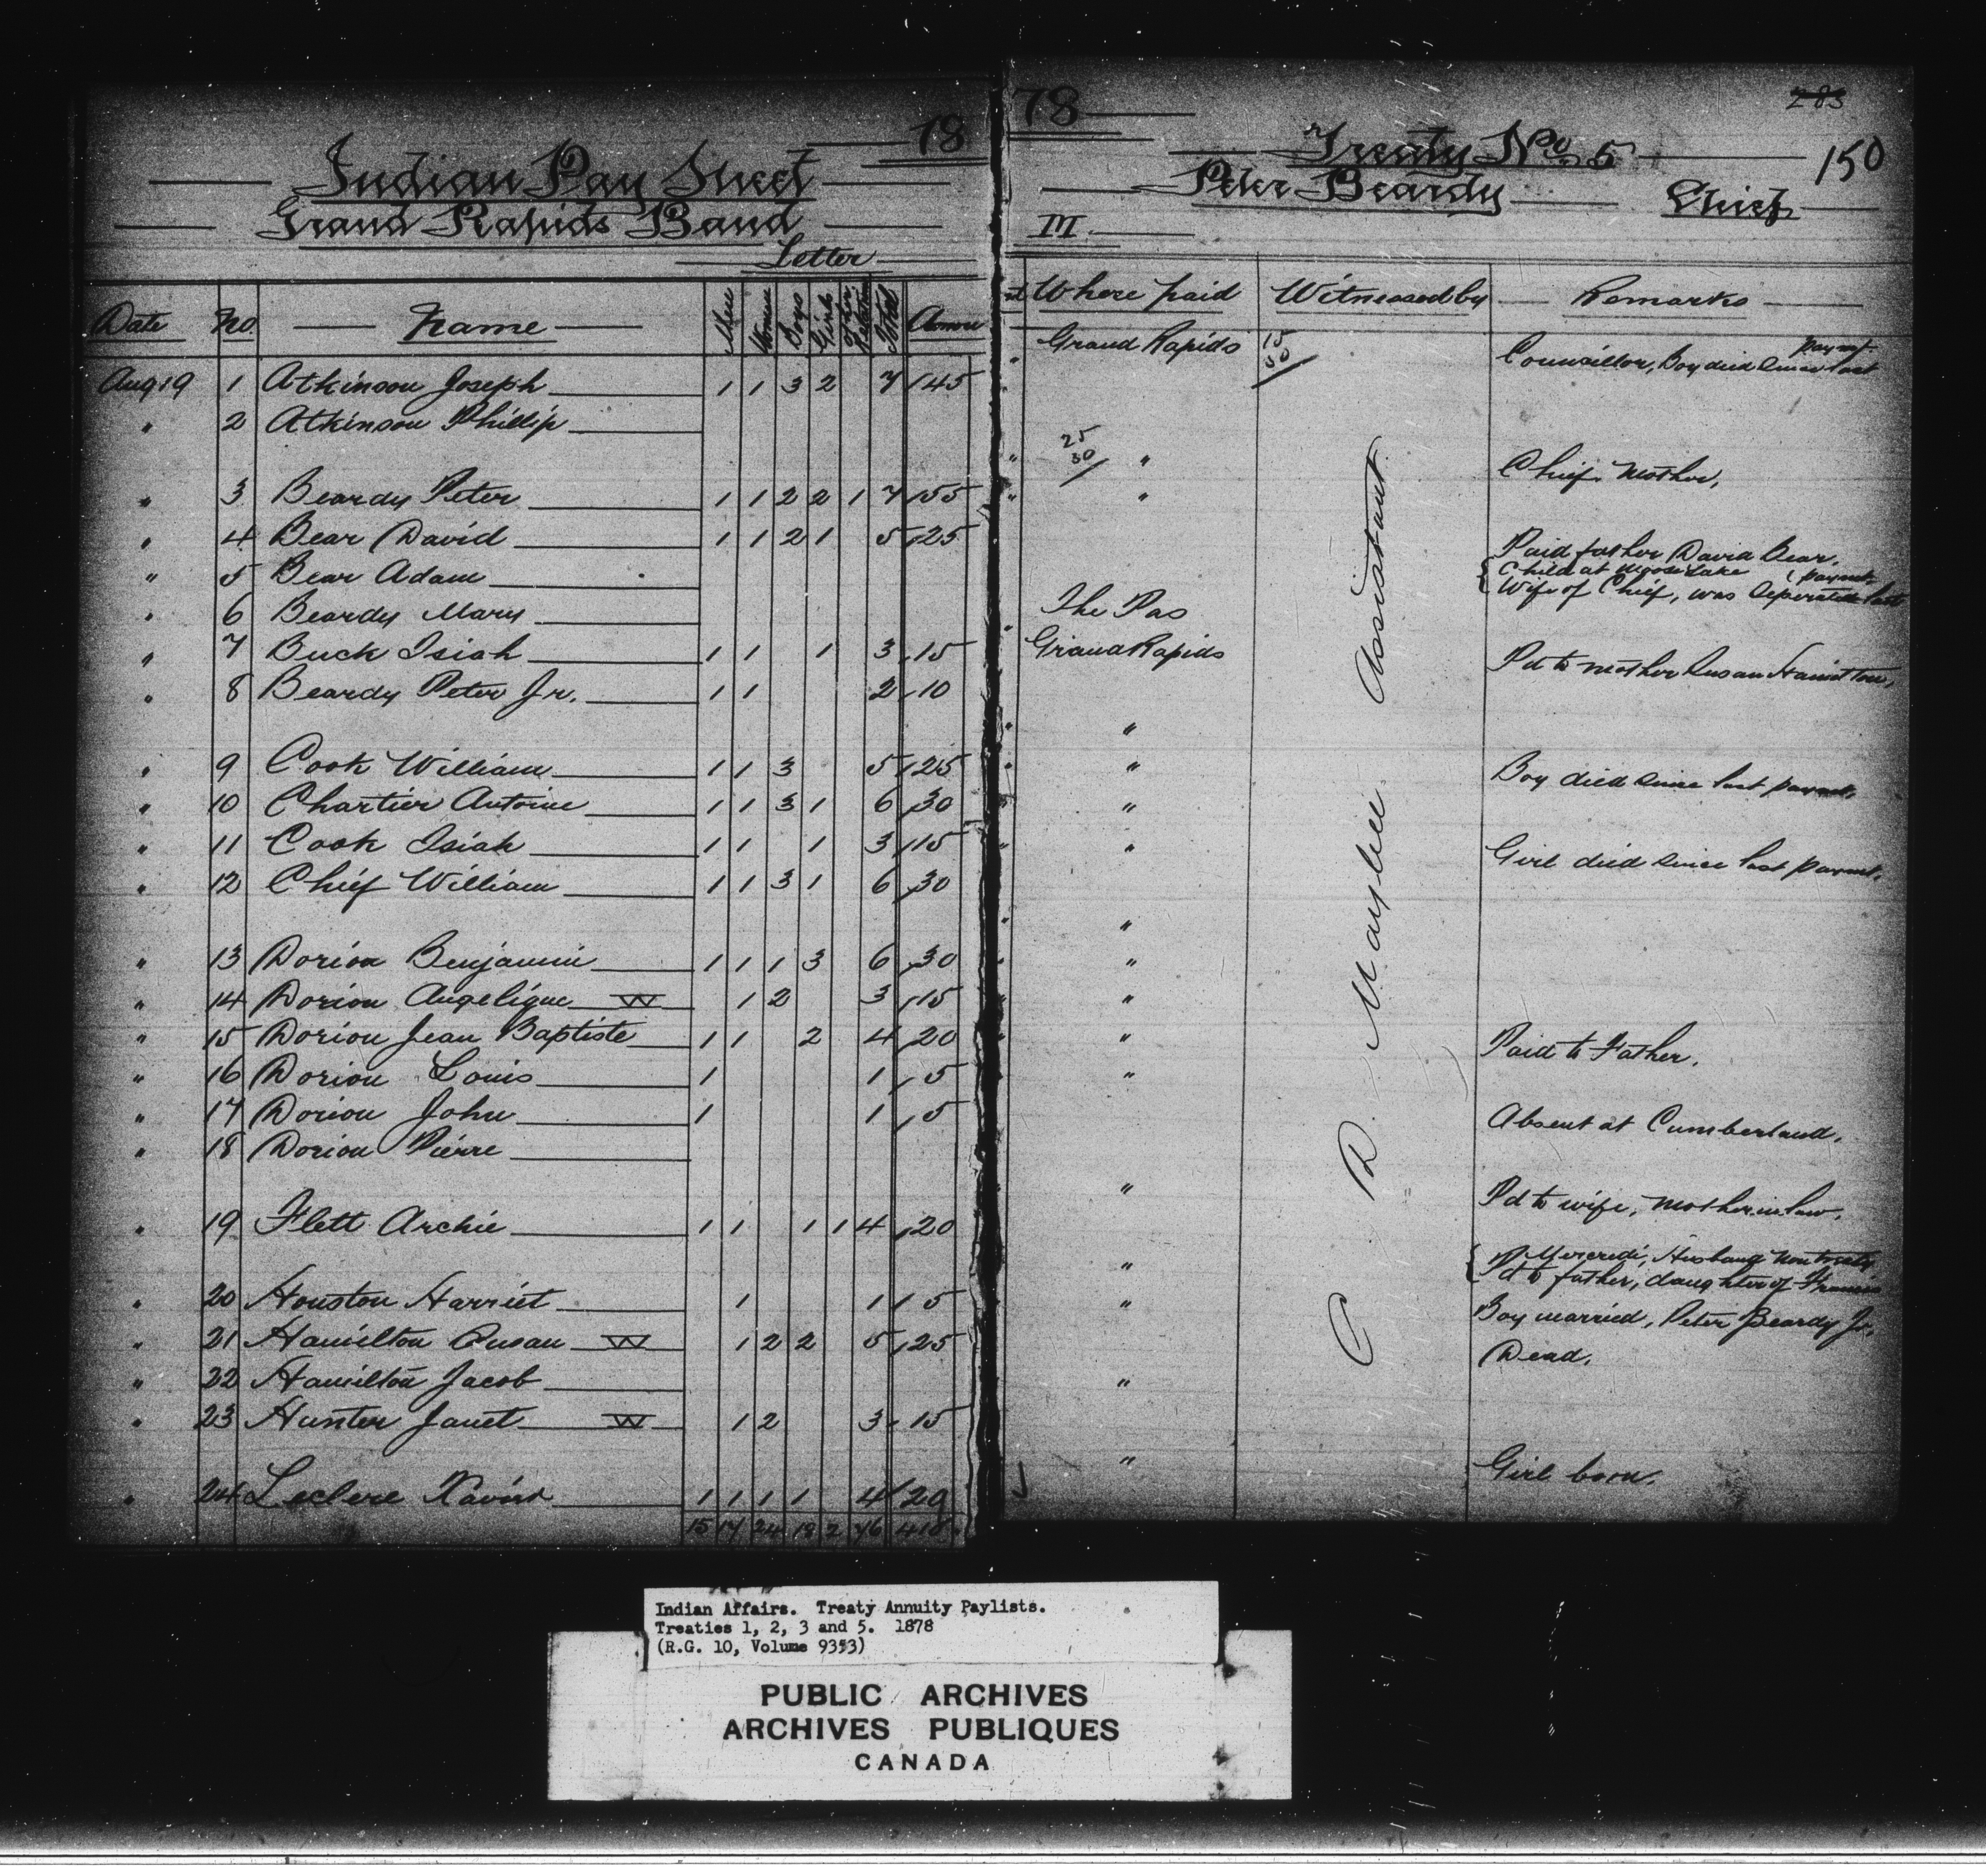 18
Indian Pay Sheet
Grand Rapids Band
Letter
Date No. Name Men Women Boys Girls Other Relations Total Amou
Aug 19 1 Atkinson Joseph 1 1 3 2 7 45
" 2 Atkinson Phillip
" 3 Beardy Peter 1 1 2 2 1 7 55
" 4 Bear David 1 1 2 1 5 25
" 5 Bear Adam
" 6 Beardy Mary
" 7 Buck Isiah 1 1 1 3 15
" 8 Beardy Peter Jr. 1 1 2 10
" 9 Cook William 1 1 3 5 25
" 10 Chartier Antoine 1 1 3 1 6 30
" 11 Cook Isiah 1 1 1 3 15
" 12 Chief William 1 1 3 1 6 30
" 13 Dorion Benjamin 1 1 1 3 6 30
" 14 Dorion Angelique W 1 2 3 15
" 15 Dorion Jean Baptiste 1 1 2 4 20
" 16 Dorion Louis 1 1 5
" 17 Dorion John 1 1 5
" 18 Dorion Pierre
" 19 Flett Archie 1 1 1 1 4 20
" 20 Houston Harriet 1 1 5
" 21 Hamilton Susan W 1 2 2 5 25
" 22 Hamilton Jacob
" 23 Hunter Janet W 1 2 3 15
" 24 Leclere Xavier 1 1 1 1 4 20
15 17 24 18 2 76 410
78
283
Treaty No. 5
150
Peter Beardy Chief
III
Where paid Witnessed by Remarks
Grand Rapids 15 30 Councillor, Boy died since last paymt.
25
30 " Chief. Mother.
"
Paid father David Bear.
Child at Moose Lake
Wife of Chief, was Seperated last paymt.
The Pas
Grand Rapids
Pd to mother Susan Hamilton.
"
" Boy died since last paymt.
"
" Girl died since last paymt.
"
"
"
" Paid to Father.
"
Absent at Cumberland.
" Pd to wife, mother in law.
" Mercredi, Husband non treaty
Pd to father, daughter of Francis
" Boy married, Peter Beardy Jr.
Dead.
"
" Girl born.
C D Maybee Assistant
Indian Affairs. Treaty Annuity Paylists.
Treaties 1, 2, 3 and 5. 1878
(R.G. 10, Volume 9353)
PUBLIC ARCHIVES
ARCHIVES PUBLIQUES
CANADA